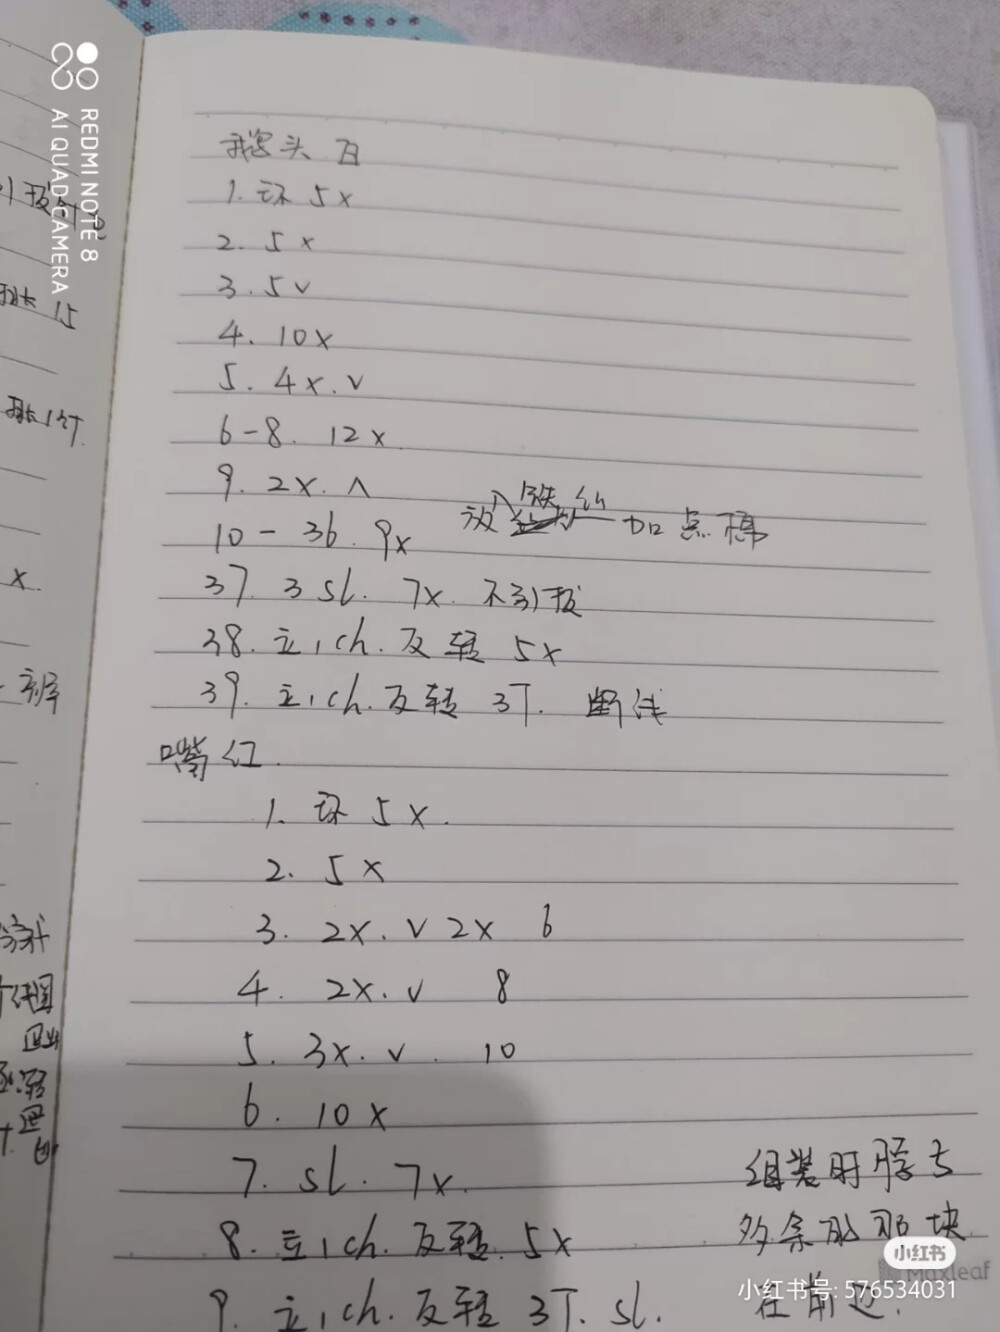 REDMI NOTE 8
AI QUAD CAMERA
鹅头 白
1. 环 5x
2. 5x
3. 5v
4. 10x
5. 4x. v
6-8. 12x
9. 2x. ʌ
放入铁丝 加点棉
10-36. 9x
37. 3 sl. 7x. 不引拔
38. 立1ch. 反转 5x
39. 立1ch. 反转 3T. 断线
嘴 红.
1. 环 5x.
2. 5x
3. 2x. v 2x 6
4. 2x. v 8
5. 3x. v. 10
6. 10x
7. sl. 7x.
8. 立1ch. 反转. 5x
9. 立1ch. 反转 3T. sl.
组装时脖子
多余的那块
在前边.
小红书
小红书号: 576534031
Maxleaf
排 15
x.